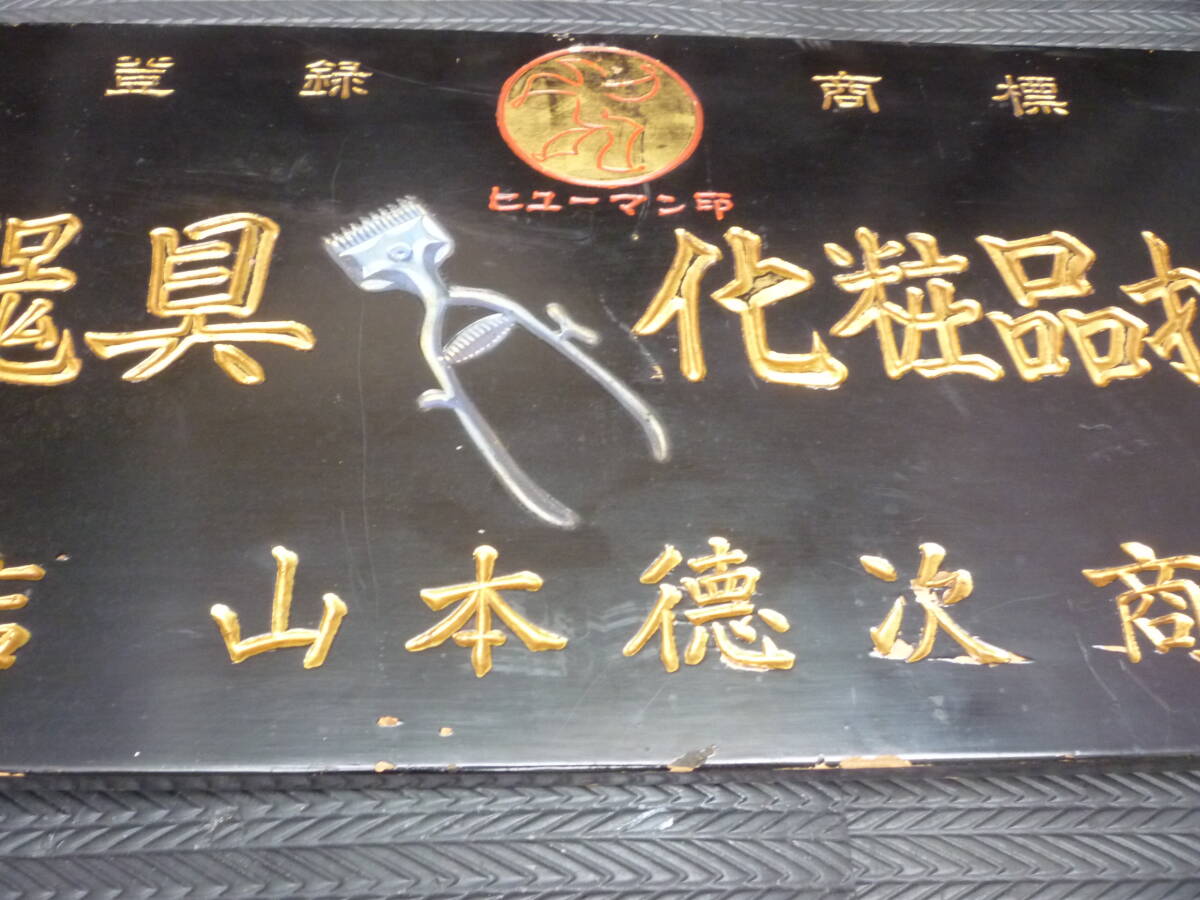 登録 商標
ヒューマン印
具 化粧品
山本德次商